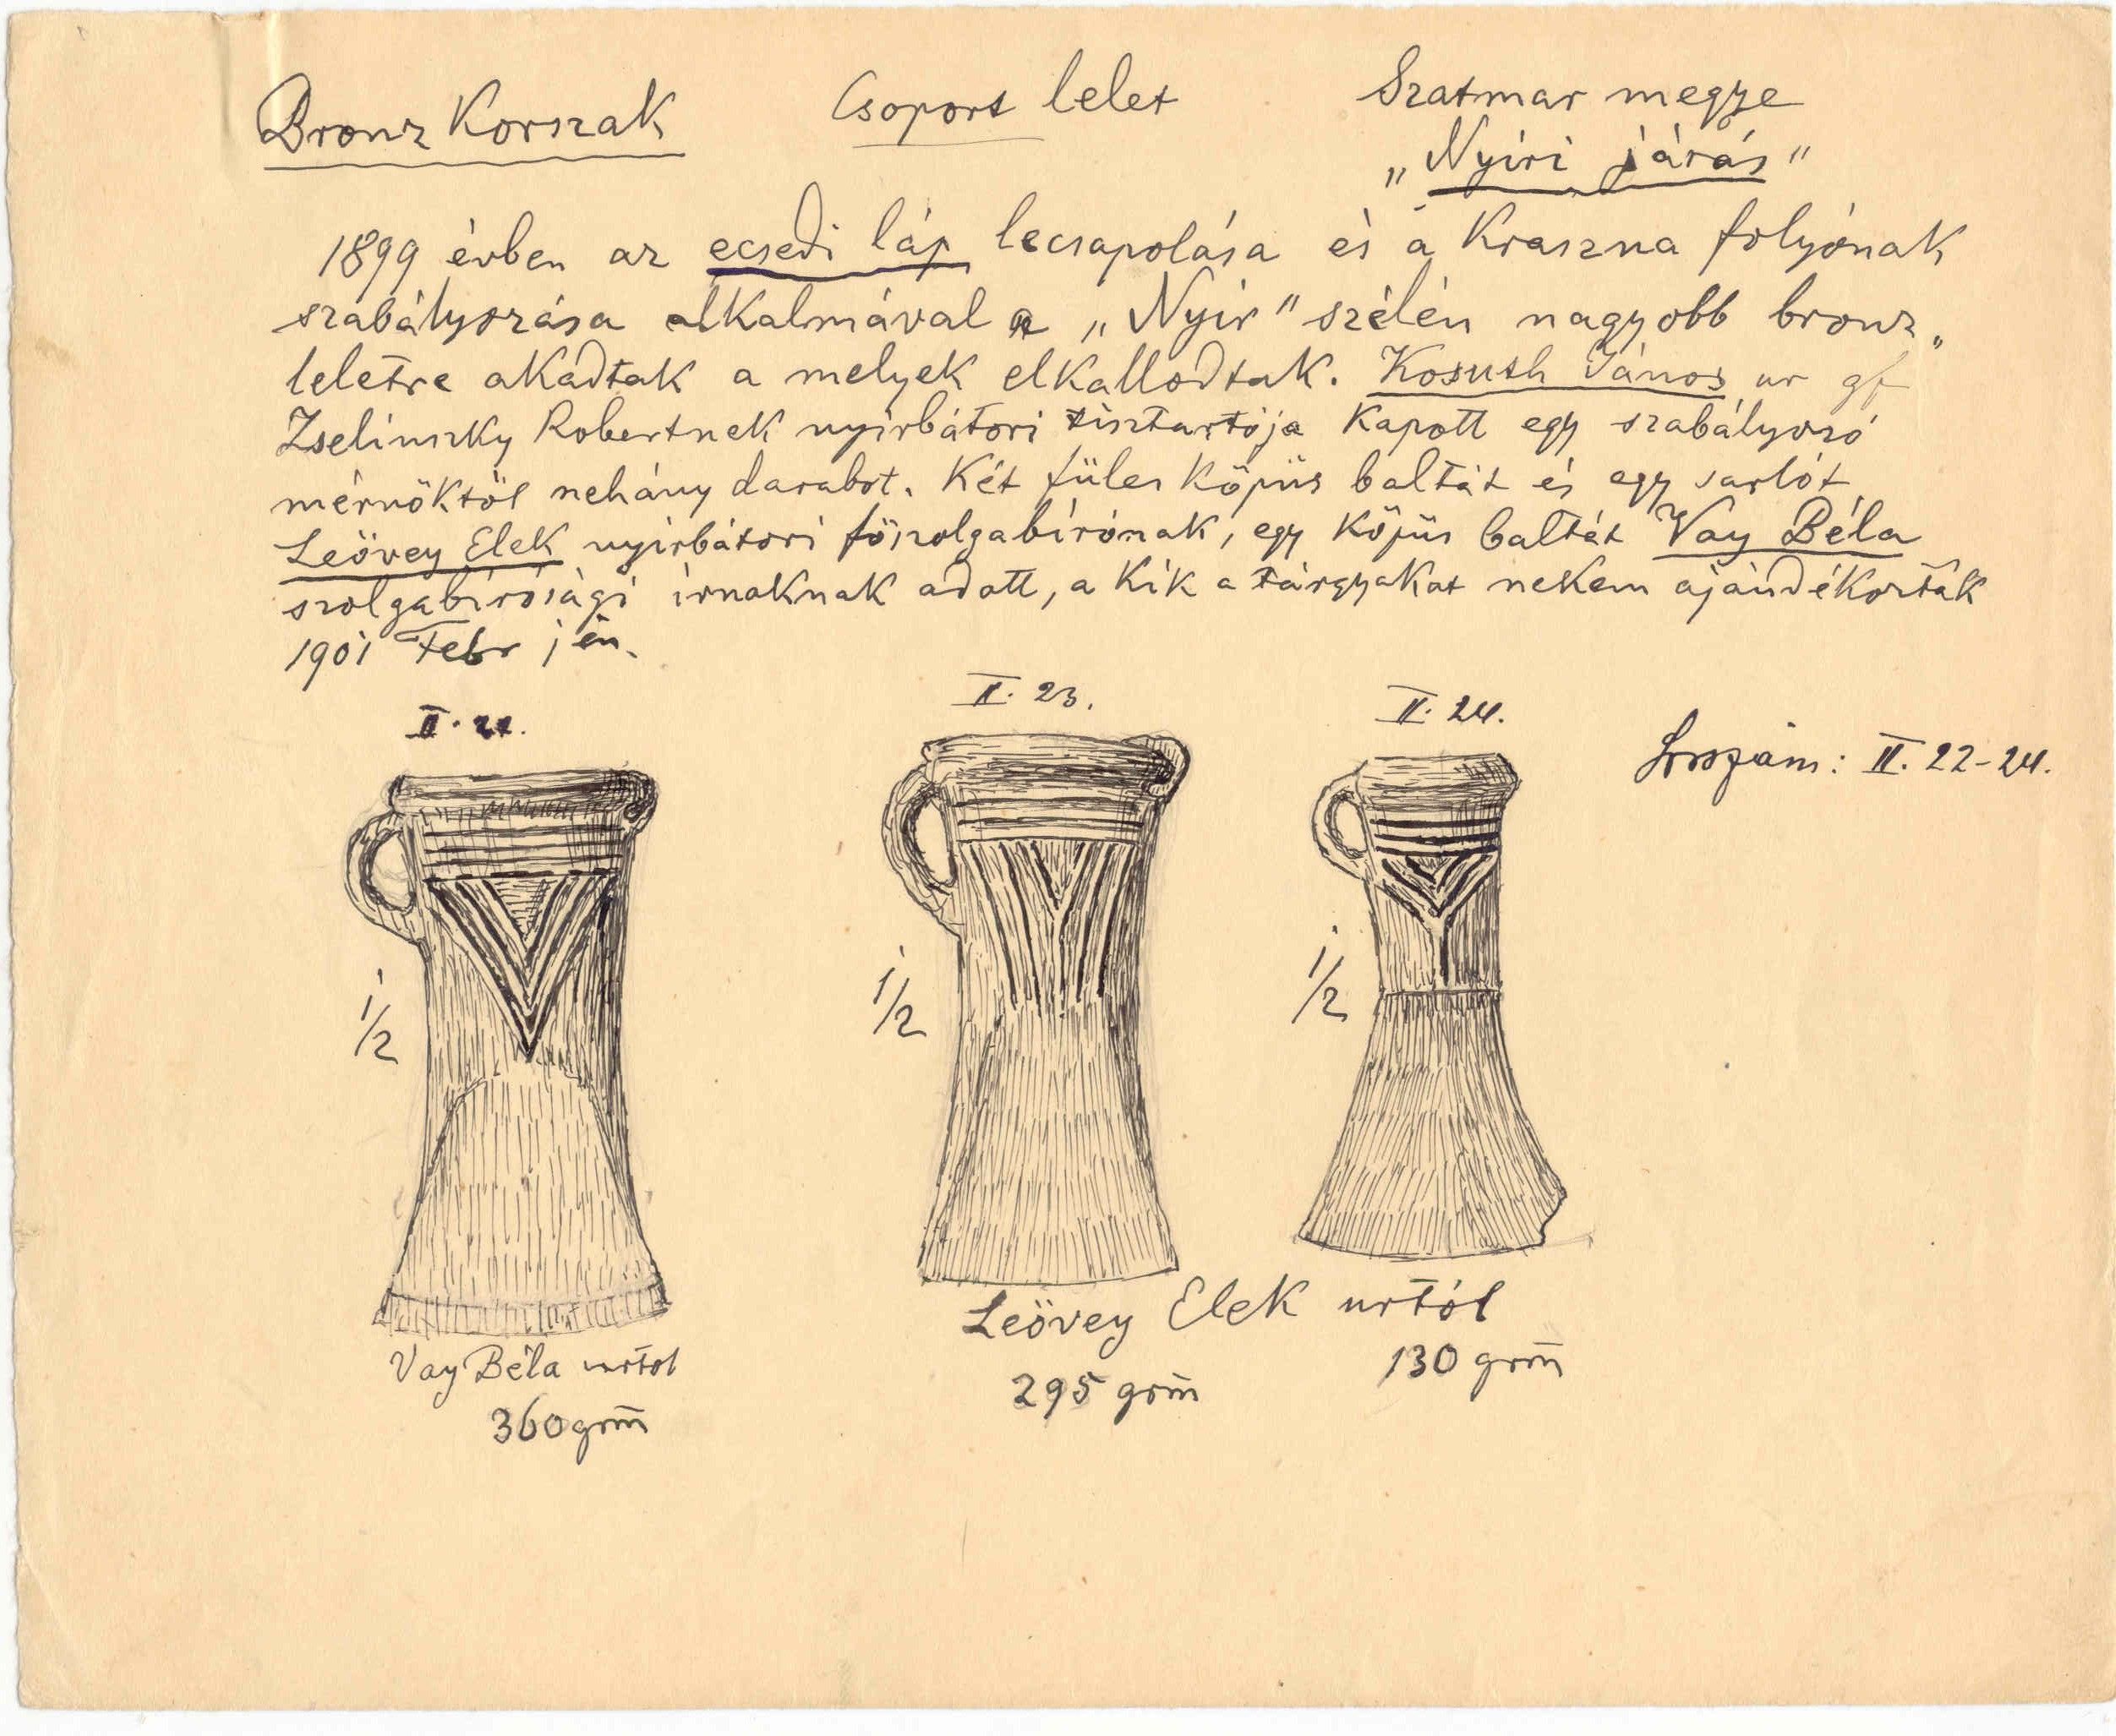 Bronz Korszak
Csoport lelet
Szatmar megye
„Nyiri járás"
1899 évben az ecsedi láp lecsapolása és a Kraszna folyónak
szabályozása alkalmával a „Nyir" szélén nagyobb bronz„
leletre akadtak a melyek elkallodtak. Kosuth János ur gf
Zselinszky Robertnek nyirbátori tisztartója kapott egy szabályozó
mérnöktöl nehány darabot. Két füles köpüs baltát és egy sarlót
Leövey Elek nyirbátori föszolgabirónak, egy köpüs baltát Vay Béla
szolgabirósági irnaknak adott, a kik a tárgyakat nekem ajándékozták
1901 Febr 1 én.
II. 23.
II. 24.
Lrszám: II. 22-24.
1/2
1/2
1/2
Vay Béla urtol
360 grm
Leövey Elek urtól
295 grm
130 grm